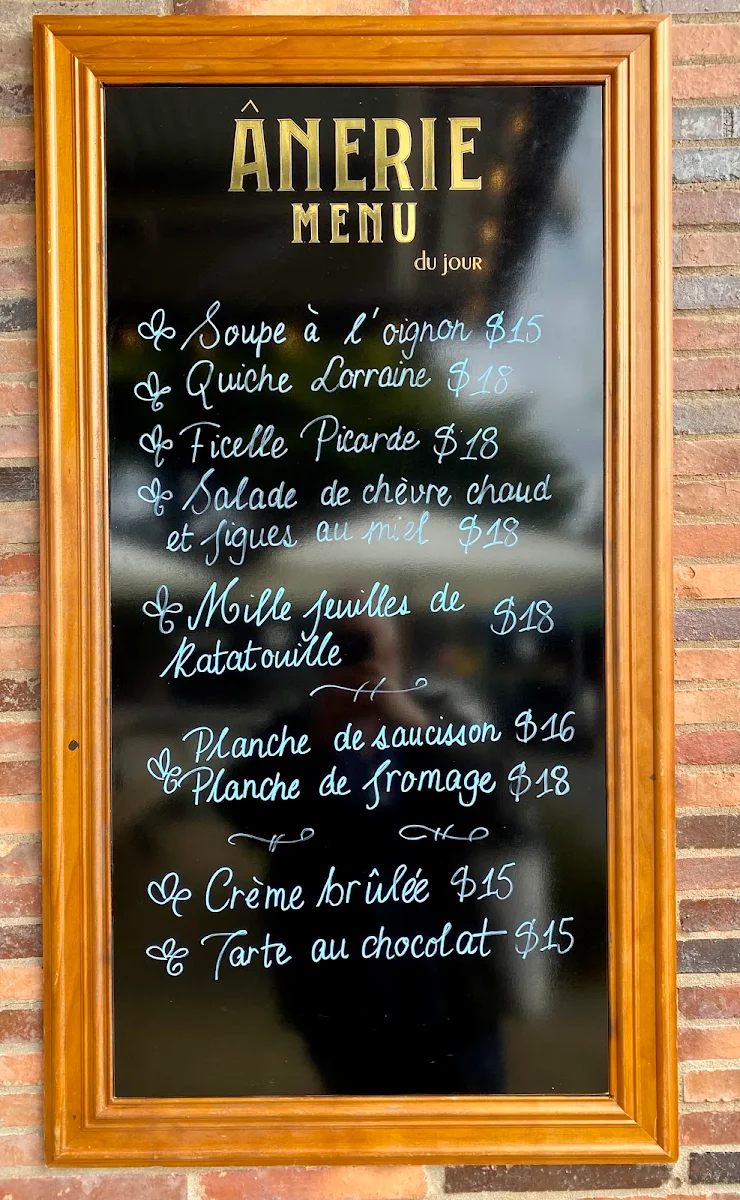 ÂNERIE
MENU
du jour
Soupe à l'oignon $15
Quiche Lorraine $18
Ficelle Picarde $18
Salade de chèvre chaud
et figues au miel $18
Mille feuilles de $18
Ratatouille
Planche de saucisson $16
Planche de fromage $18
Crème brûlée $15
Tarte au chocolat $15